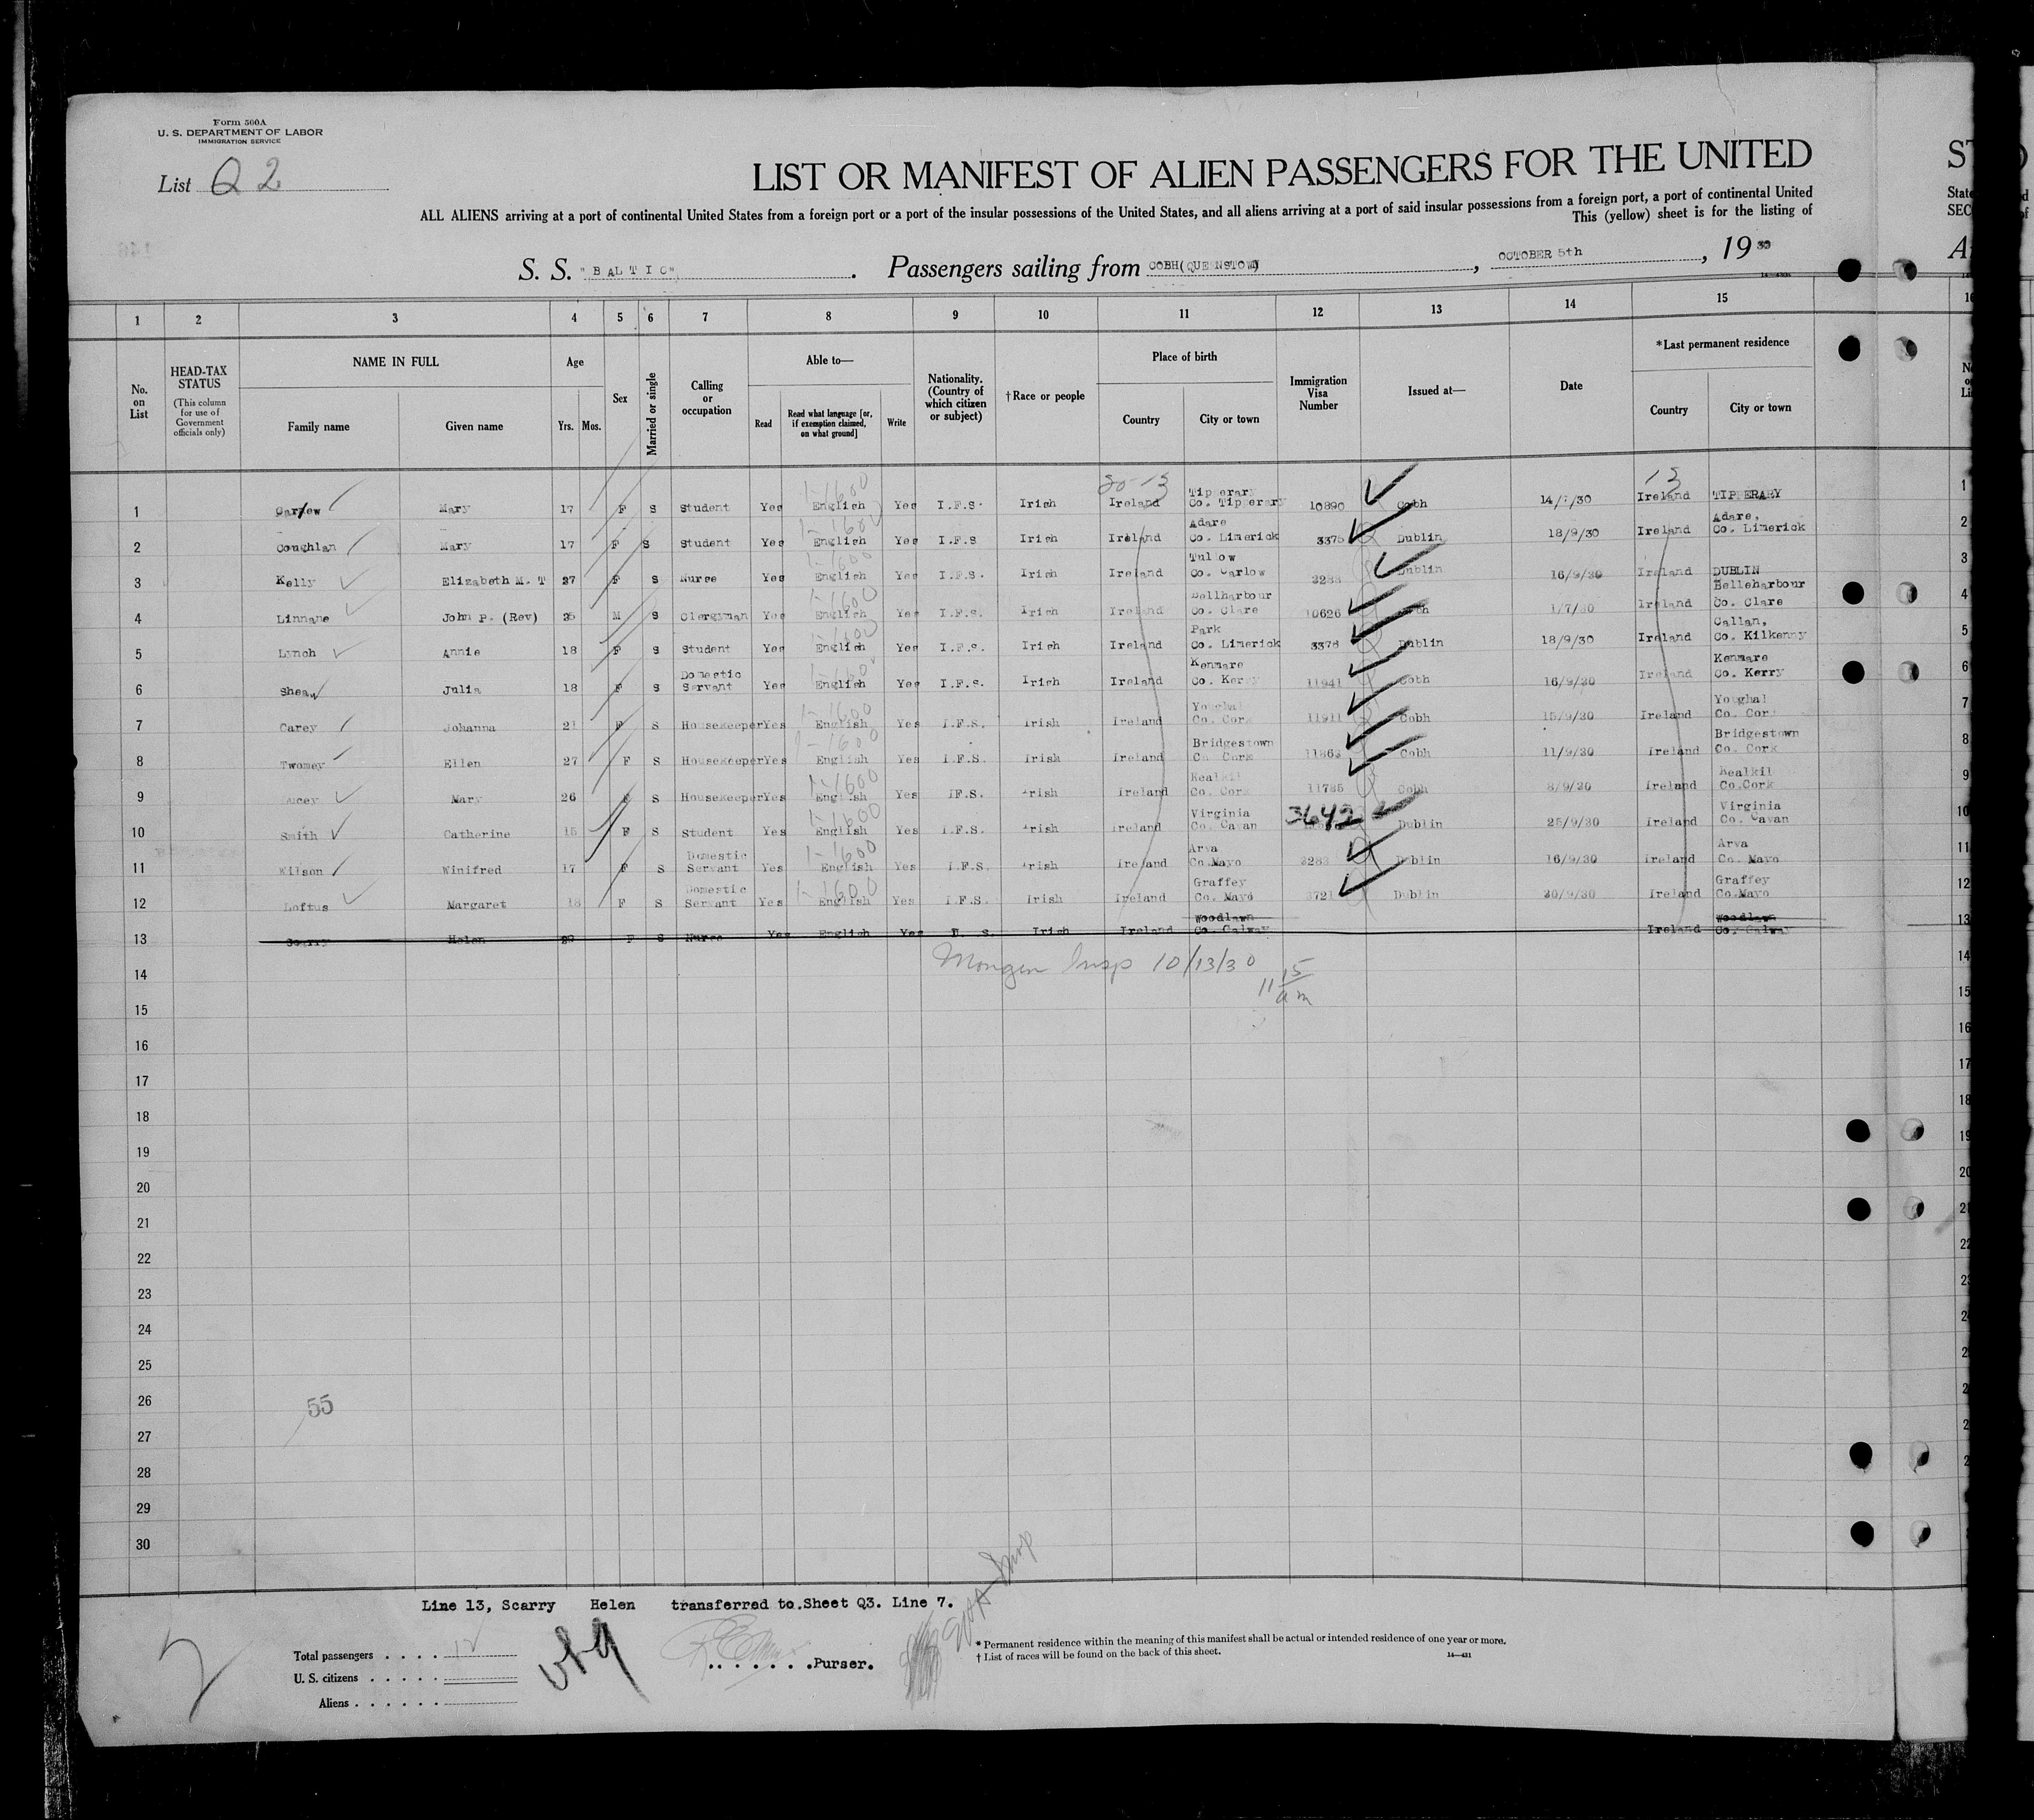 Form 500A
U. S. DEPARTMENT OF LABOR
IMMIGRATION SERVICE
List Q 2
LIST OR MANIFEST OF ALIEN PASSENGERS FOR THE UNITED
ALL ALIENS arriving at a port of continental United States from a foreign port or a port of the insular possessions of the United States, and all aliens arriving at a port of said insular possessions from a foreign port, a port of continental United
This (yellow) sheet is for the listing of
S. S. "BALTIC". Passengers sailing from COBH(QUEENSTOWN), OCTOBER 5th, 19 30
1 2 3 4 5 6 7 8 9 10 11 12 13 14 15
No. on List
HEAD-TAX STATUS
(This column for use of Government officials only)
NAME IN FULL
Family name Given name
Age
Yrs. Mos.
Sex
Married or single
Calling or occupation
Able to—
Read
Read what language [or, if exemption claimed, on what ground]
Write
Nationality. (Country of which citizen or subject)
†Race or people
Place of birth
Country City or town
Immigration Visa Number
Issued at—
Date
*Last permanent residence
Country City or town
1 Mary 17 F S Student Yes English Yes I.F.S. Irish Ireland Tipperary Co. Tipperary 10890 Cobh 14/7/30 Ireland TIPPERARY
2 Coughlan Mary 17 F S Student Yes English Yes I.F.S Irish Ireland Adare Co. Limerick 3375 Dublin 18/9/30 Ireland Adare, Co. Limerick
3 Kelly Elizabeth M. T 27 F S Nurse Yes English Yes I.F.S. Irish Ireland Tullow Co. Carlow Dublin 16/9/30 Ireland DUBLIN
4 Linnane John P. (Rev) 25 M S Clergyman Yes English Yes I.F.S. Irish Ireland Bellharbour Co. Clare 10626 Cobh 1/7/30 Ireland Belleharbour Co. Clare
5 Lynch Annie 18 F S Student Yes English Yes I.F.S. Irish Ireland Park Co. Limerick 3376 Dublin 18/9/30 Ireland Callan, Co. Kilkenny
6 Shea Julia 18 F S Domestic Servant Yes English Yes I.F.S. Irish Ireland Kenmare Co. Kerry 11941 Cobh 16/9/30 Ireland Kenmare Co. Kerry
7 Carey Johanna 21 F S Housekeeper Yes English Yes I.F.S. Irish Ireland Youghal Co. Cork 11911 Cobh 15/9/30 Ireland Youghal Co. Cor
8 Twomey Ellen 27 F S Housekeeper Yes English Yes I.F.S. Irish Ireland Bridgestown Co Cork 11863 Cobh 11/9/30 Ireland Bridgestown Co. Cork
9 Mary 26 F S Housekeeper Yes English Yes IF.S. Irish Ireland Kealkil Co. Cork 11785 Cobh 8/9/30 Ireland Kealkil Co.Cork
10 Smith Catherine 15 F S Student Yes English Yes I.F.S. Irish Ireland Virginia Co. Cavan 3642 Dublin 25/9/30 Ireland Virginia Co. Cavan
11 Wilson Winifred 17 F S Domestic Servant Yes English Yes I.F.S. Irish Ireland Arva Co.Mayo Dublin 16/9/30 Ireland Arva Co. Mayo
12 Loftus Margaret 18 F S Domestic Servant Yes English Yes I.F.S. Irish Ireland Graffey Co. Mayo 3721 Dublin 30/9/30 Ireland Graffey Co.Mayo
13 Scarry Helen 29 F S Nurse Yes English Yes Irish Ireland Woodlawn Co. Galway Ireland Woodlawn Co. Galway
14 Insp 10/13/30
11 15 am
15
16
17
18
19
20
21
22
23
24
25
26
55
27
28
29
30
Line 13, Scarry Helen transferred to.Sheet Q3. Line 7.
Total passengers . . . . 12
U. S. citizens . . . . .
Aliens . . . . . .
. . . . . . .Purser.
* Permanent residence within the meaning of this manifest shall be actual or intended residence of one year or more.
† List of races will be found on the back of this sheet.
14—431